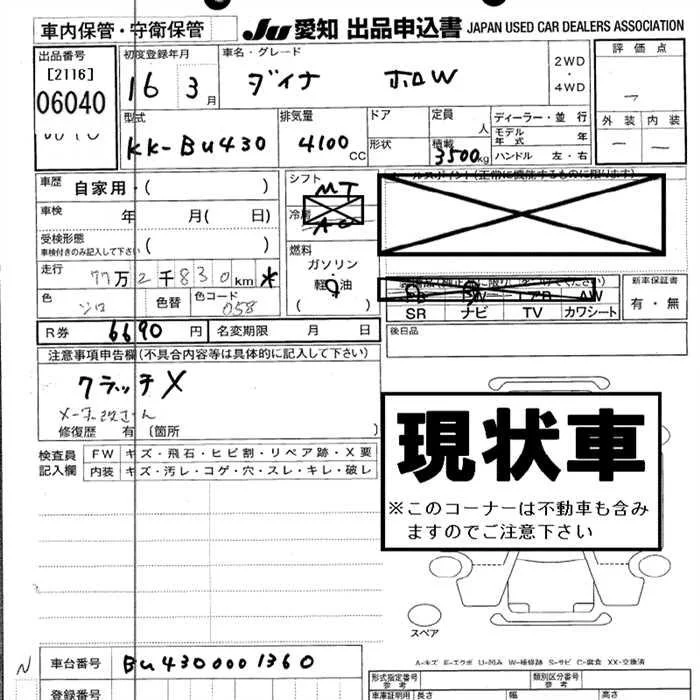 車内保管・守衛保管
JU愛知 出品申込書 JAPAN USED CAR DEALERS ASSOCIATION
出品番号 [2116] 06040
初度登録年月 16 3月
車名・グレード ダイナ ホロW
2WD・4WD
評価点
外装 内装
型式 KK-BU430
排気量 4100CC
ドア 形状
定員 人
積載 3500kg
ディーラー・並行
モデル年式 年
ハンドル 左・右
車歴 自家用・( )
車検 年 月( 日)
受検形態 車検付きのみ記入して下さい ( )
走行 77万2千830km*
色 シロ 色替 色コード 058
シフト MT
冷房 AC
燃料 ガソリン・軽油
( )
セールスポイント(正常に機能するものに限ります)
SR ナビ TV カワシート
新車保証書 有・無
後日品
R券 6690円 名変期限 月 日
注意事項申告欄(不具合内容等は具体的に記入して下さい)
クラッチX
修復歴 有 〔箇所 〕
検査員記入欄 FW キズ・飛石・ヒビ割・リペア跡・X要
内装 キズ・汚レ・コゲ・穴・スレ・キレ・破レ
現状車
※このコーナーは不動車も含みますのでご注意下さい
スペア
A-キズ E-エクボ U-凹み W-補修跡 S-サビ C-腐食 XX-交換済
N
車台番号 BU4300001360
登録番号
形式指定番号 参考
類別区分番号 参考
車庫証明用 長さ 幅 高さ